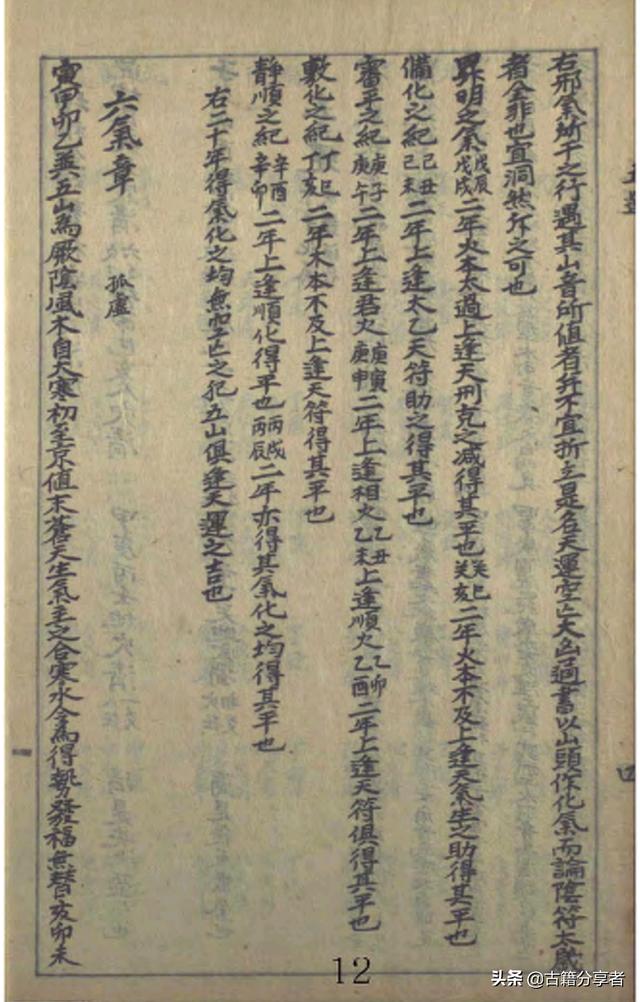 右邪氣所干之行遇其山音所值者并不宜折立是名天運空亡大凶通書以山頭作化氣而論陰符太歲
者全非也宜洞然斥之可也
昇明之氣戊辰戊戌二年火本太過上逢天刑克之減得其平也癸巳癸亥二年火本不及上逢天氣生之助得其平也
備化之紀己丑己未二年上逢太乙天符助之得其平也
審平之紀庚子庚午二年上逢君火庚寅庚申二年上逢相火乙丑乙未上逢順火乙卯乙酉二年上逢天符俱得其平也
敷化之紀丁巳丁亥二年木本不及上逢天符得其平也
靜順之紀辛酉辛卯二年上逢順化得平也丙戌丙辰二年亦得其氣化之均得其平也
右二十年得氣化之均無空亡之犯五山俱逢天運之吉也
六氣章 孤虛
寅甲卯乙巽五山為厥陰風木自大寒初至京值木蒼天生氣主之合寒水令為得勢發福無替亥卯未
12
頭条 @古籍分享者